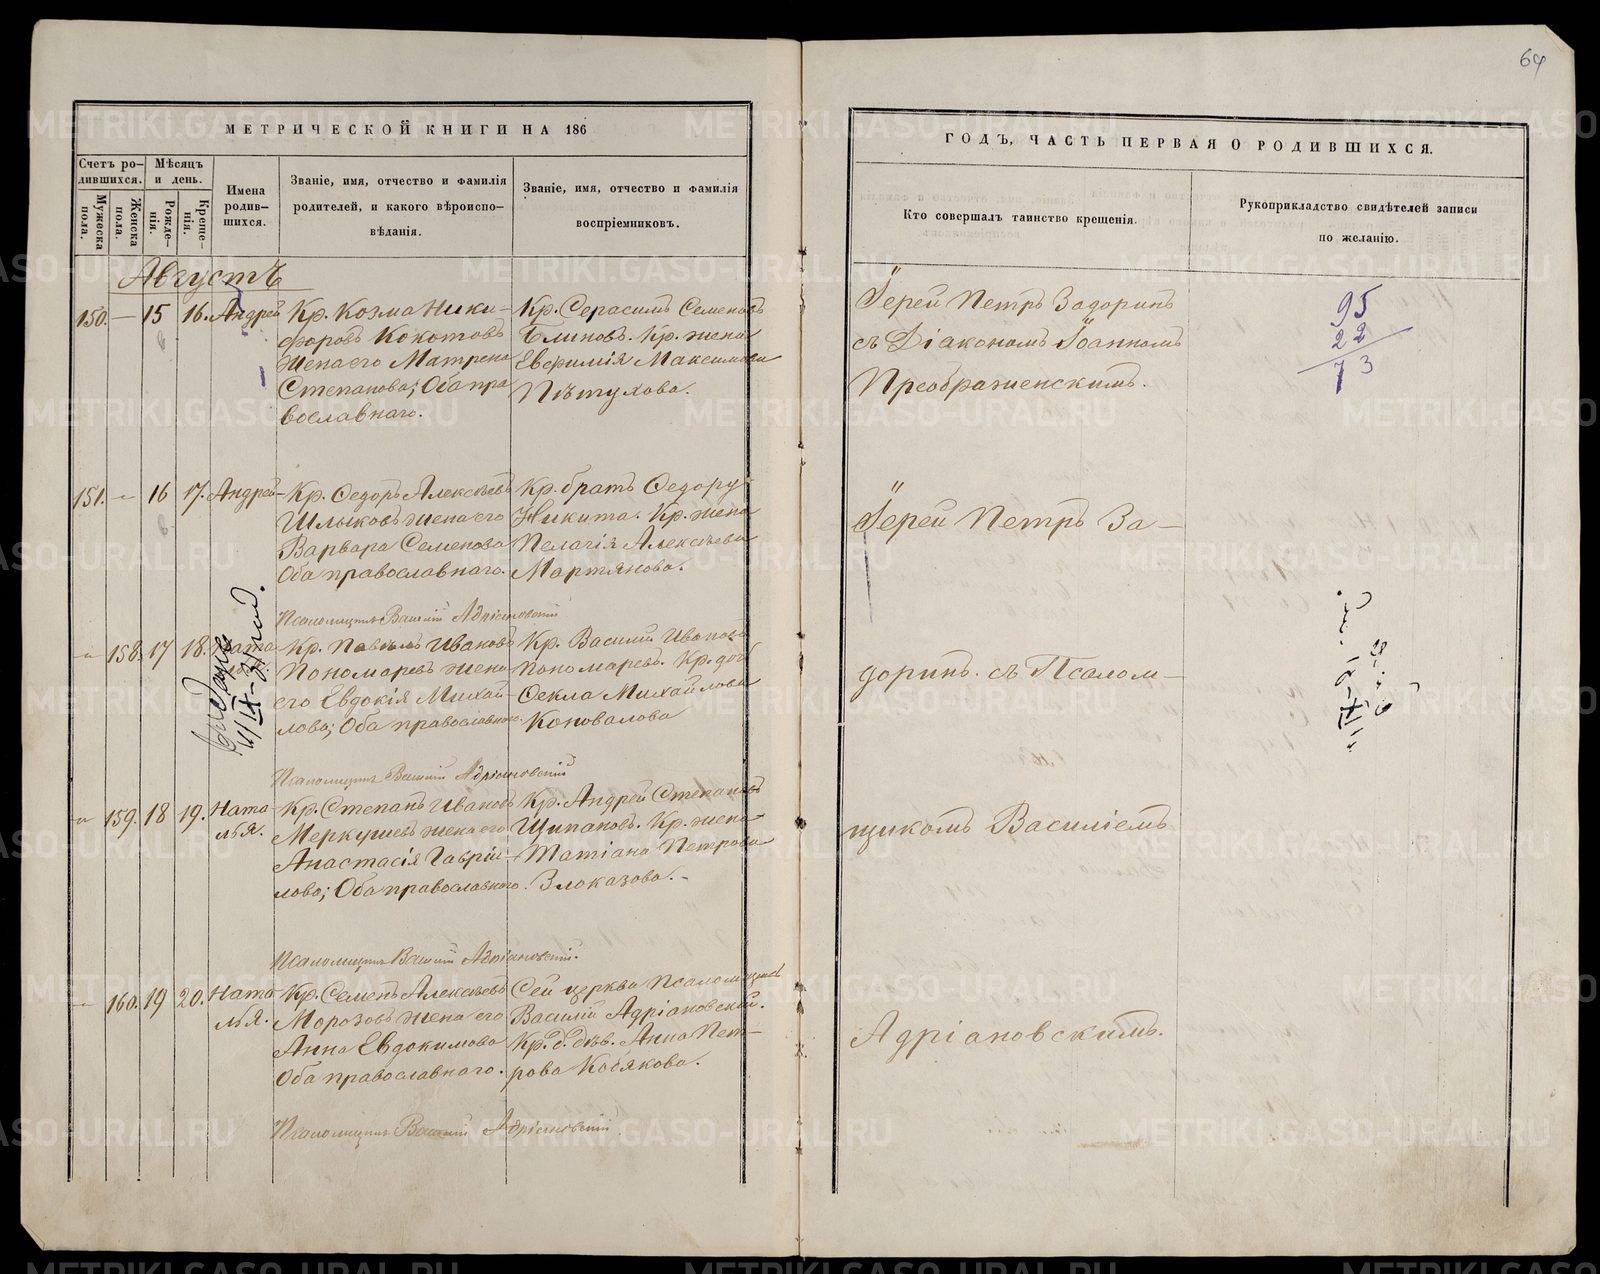 64
МЕТРИЧЕСКОЙ КНИГИ НА 186
ГОДЪ, ЧАСТЬ ПЕРВАЯ О РОДИВШИХСЯ.
Счетъ ро-
дившихся.
Мужеска
пола.
Женска
пола.
Мѣсяцъ
и день.
Рожде-
нія.
Креще-
нія.
Имена
родив-
шихся.
Званіе, имя, отчество и фамилія
родителей, и какого вѣроиспо-
вѣданія.
Званіе, имя, отчество и фамилія
воспріемниковъ.
Кто совершалъ таинство крещенія.
Рукоприкладство свидѣтелей записи
по желанію.
Августъ
150. — 15 16. Андрей
Кр. Козма Ники-
форовъ Кокотовъ
жена его Матрена
Степанова; Оба пра
вославнаго.
Кр. Герасимъ Семеновъ
Блиновъ. Кр. жена
Евфимія Максимова
Пѣтухова.
Іерей Петръ Задоринъ
съ Діакономъ Іоанномъ
Преображенскимъ.
95
22
73
151. — 16 17. Андрей
Кр. Федоръ Алексѣевъ
Шлыковъ жена его
Варвара Семенова
Оба православнаго.
Кр. братъ Федору
Никита. Кр. жена
Пелагія Алексѣева
Мартянова.
Іерей Петръ За-
Псаломщикъ Василій Адріановскій
— 158. 17 18. Ната
Кр. Павелъ Ивановъ
Пономаревъ жена
его Евдокія Михай-
лова; Оба православнаго.
Кр. Василій Ивановъ
Пономаревъ. Кр. доч
Фекла Михайлова
Коновалова
доринъ. съ Псалом-
Псаломщикъ Василій Адріановскій
— 159. 18 19. Ната
лья.
Кр. Степанъ Ивановъ
Меркушевъ жена его
Анастасія Гаврии-
лова; Оба православнаго.
Кр. Андрей Степановъ
Щипановъ. Кр. жена
Татіана Петрова
Злоказова.
щикомъ Василіемъ
Псаломщикъ Василій Адріановскій.
— 160. 19 20. Ната
лья.
Кр. Семенъ Алексѣевъ
Морозовъ жена его
Анна Евдокимова
Оба православнаго.
Сей церкви Псаломщикъ
Василій Адріановскій.
Кр. д. дѣв. Анна Пет-
рова Кобякова.
Адріановскимъ.
Псаломщикъ Василій Адріановскій
METRIKI.GASO-URAL.RU